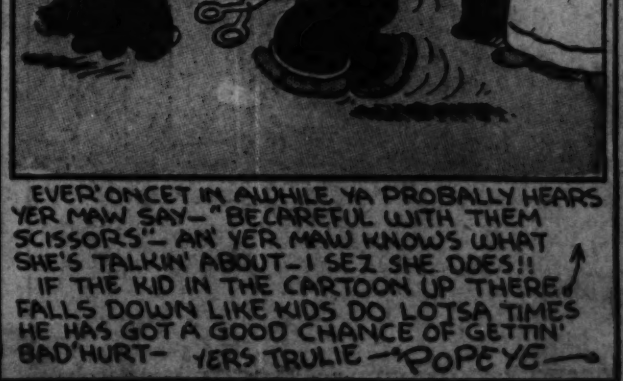 EVER' ONCET IN AWHILE YA PROBALLY HEARS
YER MAW SAY—"BECAREFUL WITH THEM
SCISSORS"— AN' YER MAW KNOWS WHAT
SHE'S TALKIN' ABOUT—I SEZ SHE DOES!!
IF THE KID IN THE CARTOON UP THERE
FALLS DOWN LIKE KIDS DO LOTSA TIMES
HE HAS GOT A GOOD CHANCE OF GETTIN'
BAD' HURT— YERS TRULIE —POPEYE—